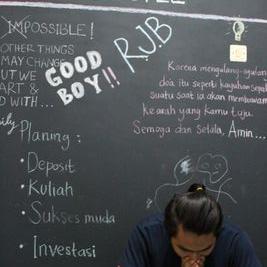 IMPOSSIBLE!
OTHER THINGS
MAY CHANGE
UT WE
ART &
D WITH...
GOOD
BOY!!
R.J.B
Karena mengulang-ngulang
doa itu seperti kayuhan sepeda
suatu saat ia akan membawamu
ke arah yang kamu tuju.
Semoga dan Selalu, Amin...
Planing :
• Deposit
• Kuliah
• Sukses muda
• Investasi